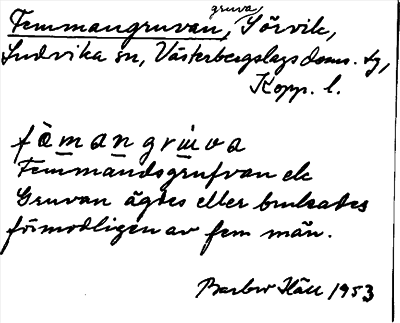 Femmangruvan, gruva, Sörvik,
Ludvika sn, Västerbergslags doms. tg,
Kopp. l.
fämangruva
Femmandsgrufvan ek
Gruvan ägdes eller brukades
förmodligen av fem män.
1953